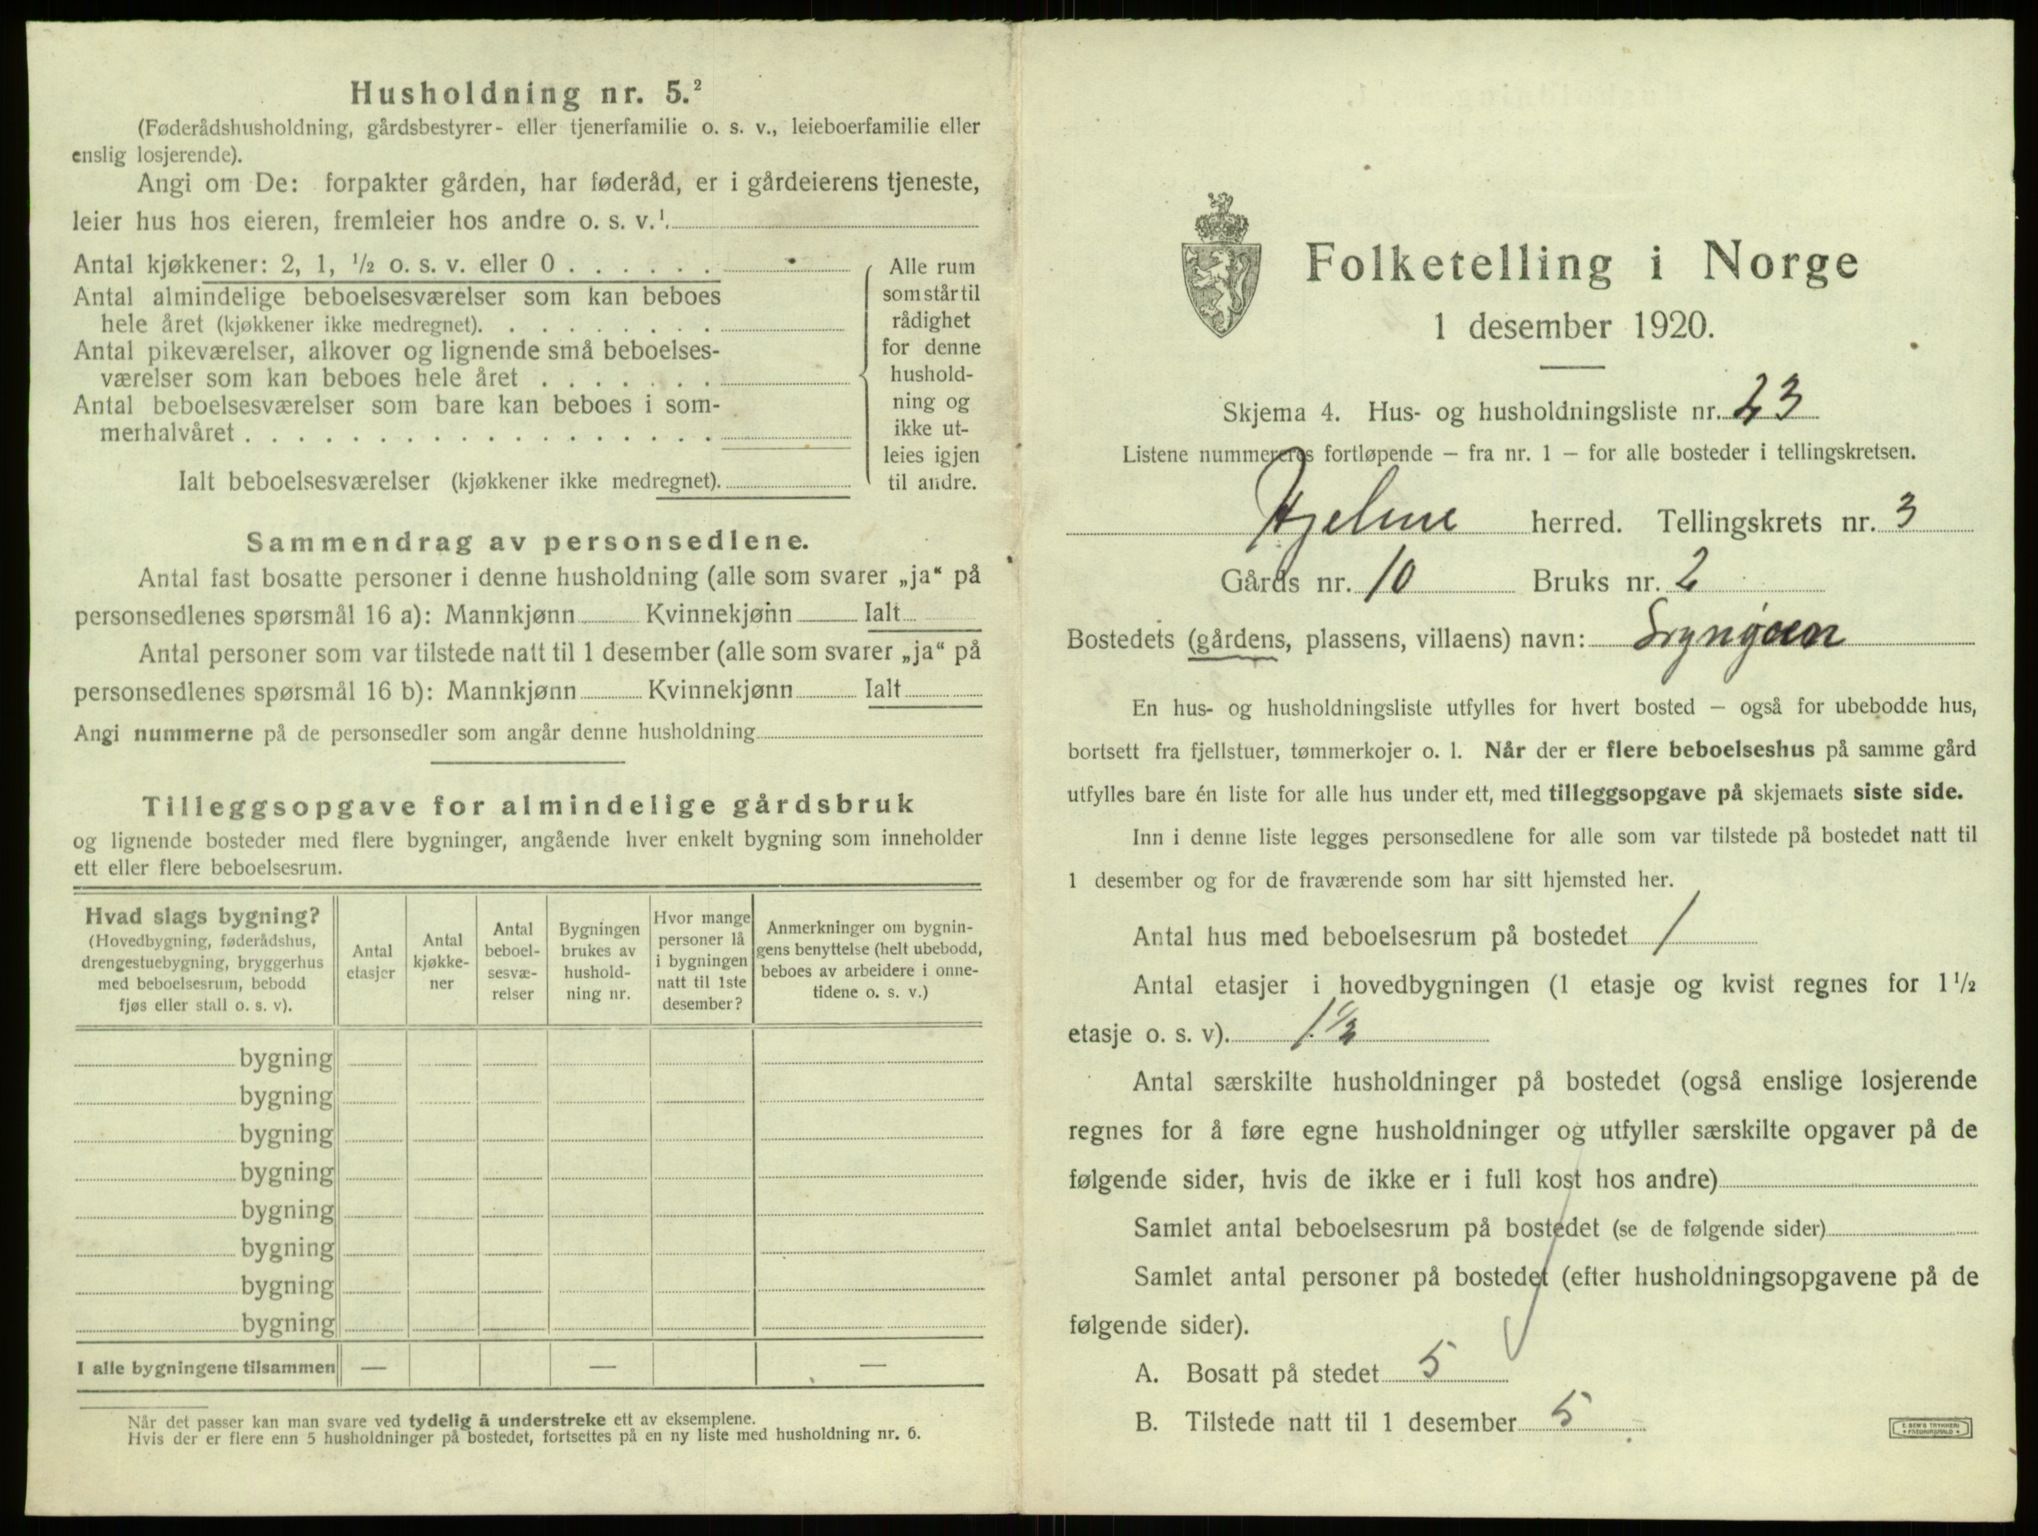 Husholdning nr. 5.²
(Føderådshusholdning, gårdsbestyrer- eller tjenerfamilie o. s. v., leieboerfamilie eller
enslig losjerende).
Angi om De: forpakter gården, har føderåd, er i gårdeierens tjeneste,
leier hus hos eieren, fremleier hos andre o. s. v.¹
Antal kjøkkener: 2, 1, ½ o. s. v. eller 0
Antal almindelige beboelsesværelser som kan beboes
hele året (kjøkkener ikke medregnet).
Antal pikeværelser, alkover og lignende små beboelses-
værelser som kan beboes hele året
Antal beboelsesværelser som bare kan beboes i som-
merhalvåret
Ialt beboelsesværelser (kjøkkener ikke medregnet).
Alle rum
som står til
rådighet
for denne
hushold-
ning og
ikke ut-
leies igjen
til andre.
Sammendrag av personsedlene.
Antal fast bosatte personer i denne husholdning (alle som svarer „ja“ på
personsedlenes spørsmål 16 a): Mannkjønn Kvinnekjønn Ialt
Antal personer som var tilstede natt til 1 desember (alle som svarer „ja“ på
personsedlenes spørsmål 16 b): Mannkjønn Kvinnekjønn Ialt
Angi nummerne på de personsedler som angår denne husholdning
Tilleggsopgave for almindelige gårdsbruk
og lignende bosteder med flere bygninger, angående hver enkelt bygning som inneholder
ett eller flere beboelsesrum.
Hvad slags bygning?
(Hovedbygning, føderådshus,
drengestuebygning, bryggerhus
med beboelsesrum, bebodd
fjøs eller stall o. s. v).
Antal
etasjer
Antal
kjøkke-
ner
Antal
beboel-
sesvæ-
relser
Bygningen
brukes av
hushold-
ning nr.
Hvor mange
personer lå
i bygningen
natt til 1ste
desember?
Anmerkninger om bygnin-
gens benyttelse (helt ubebodd,
beboes av arbeidere i onne-
tidene o. s. v.)
bygning
bygning
bygning
bygning
bygning
bygning
bygning
bygning
I alle bygningene tilsammen — — —
Når det passer kan man svare ved tydelig å understreke ett av eksemplene.
Hvis der er flere enn 5 husholdninger på bostedet, fortsettes på en ny liste med husholdning nr. 6.
Folketelling i Norge
1 desember 1920.
Skjema 4. Hus- og husholdningsliste nr. 23
Listene nummereres fortløpende – fra nr. 1 – for alle bosteder i tellingskretsen.
Hjelme herred. Tellingskrets nr. 3
Gårds nr. 10 Bruks nr. 2
Bostedets (gårdens, plassens, villaens) navn:
En hus- og husholdningsliste utfylles for hvert bosted – også for ubebodde hus,
bortsett fra fjellstuer, tømmerkojer o. l. Når der er flere beboelseshus på samme gård
utfylles bare én liste for alle hus under ett, med tilleggsopgave på skjemaets siste side.
Inn i denne liste legges personsedlene for alle som var tilstede på bostedet natt til
1 desember og for de fraværende som har sitt hjemsted her.
Antal hus med beboelsesrum på bostedet 1
Antal etasjer i hovedbygningen (1 etasje og kvist regnes for 1½
etasje o. s. v). 1½
Antal særskilte husholdninger på bostedet (også enslige losjerende
regnes for å føre egne husholdninger og utfyller særskilte opgaver på de
følgende sider, hvis de ikke er i full kost hos andre)
Samlet antal beboelsesrum på bostedet (se de følgende sider)
Samlet antal personer på bostedet (efter husholdningsopgavene på de
følgende sider).
A. Bosatt på stedet 5
B. Tilstede natt til 1 desember 5